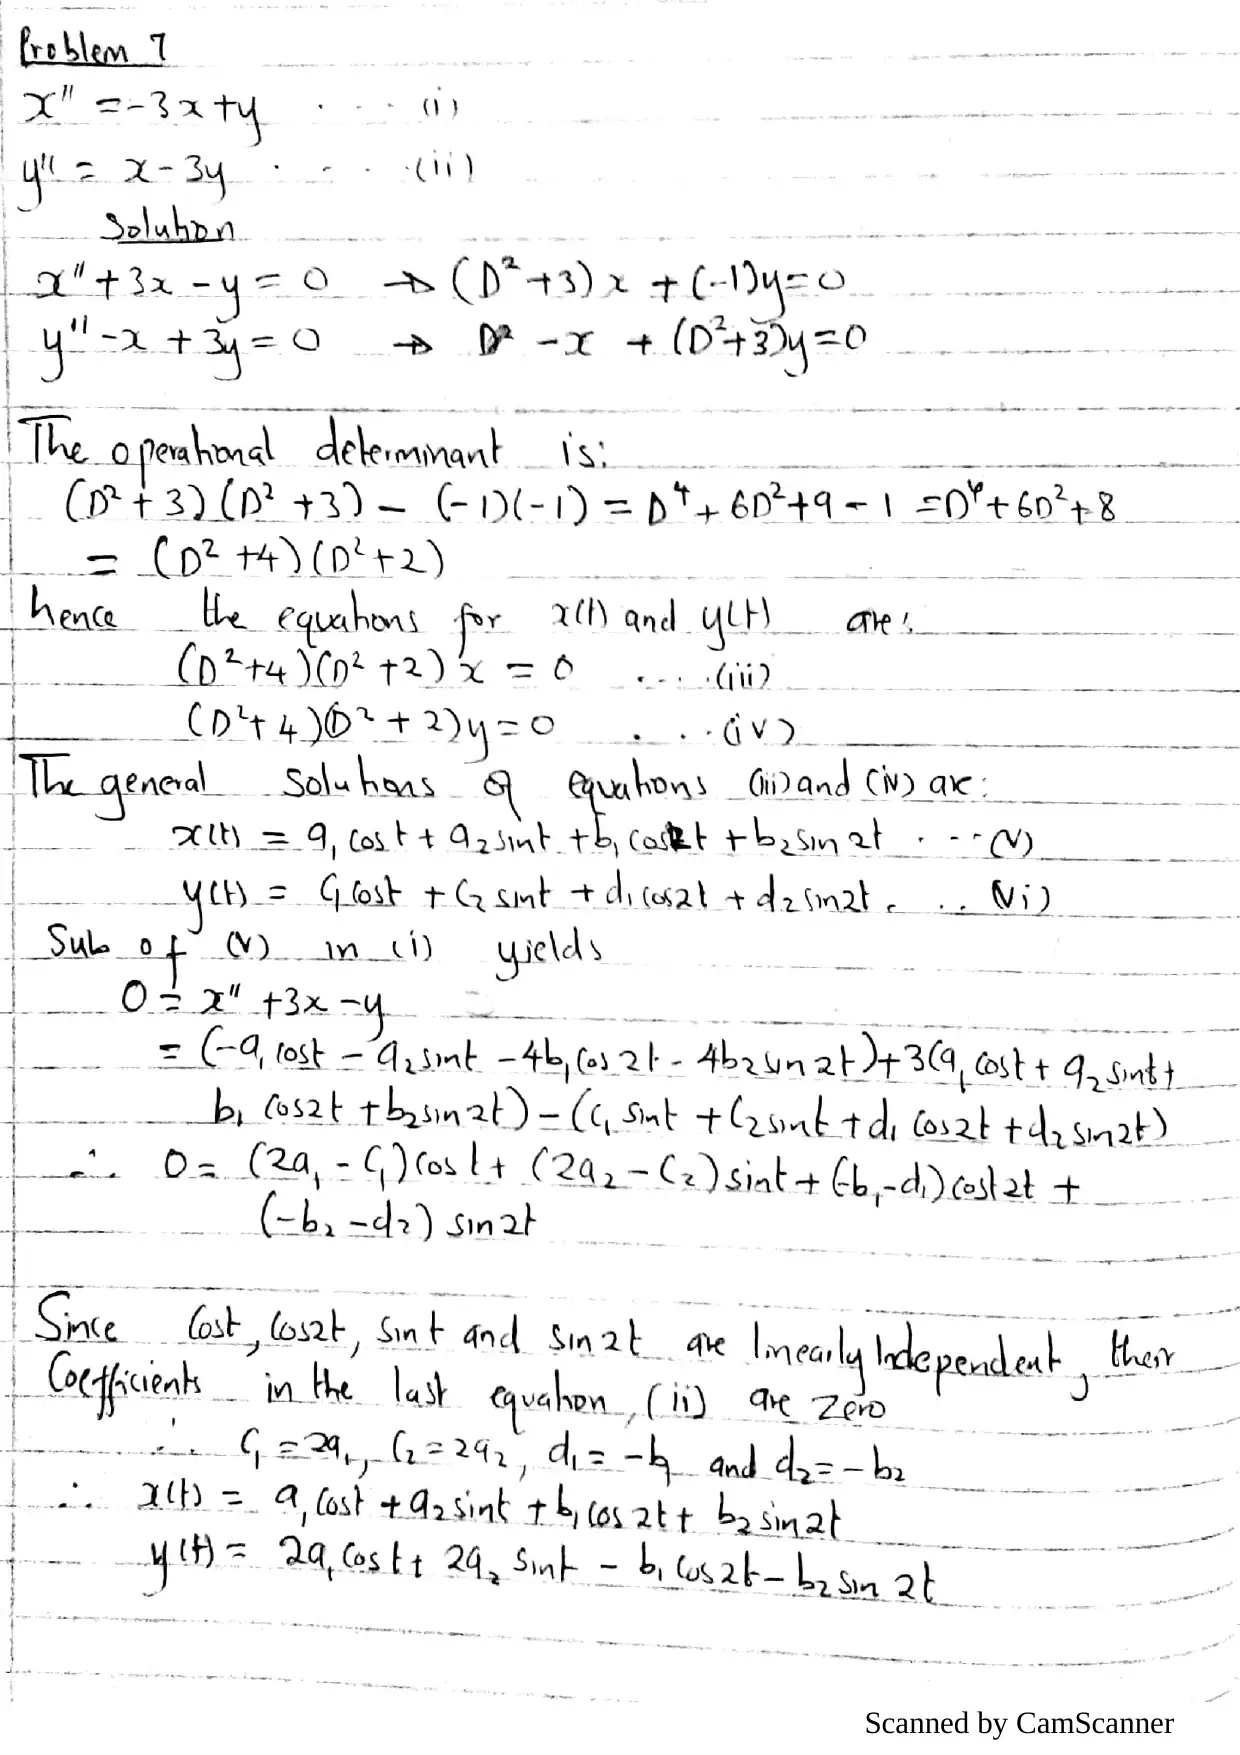 Problem 7
x'' = -3x + y . . . . (i)
y'' = x - 3y . . . . (ii)
Solution
x'' + 3x - y = 0 → (D² + 3)x + (-1)y = 0
y'' - x + 3y = 0 → - x + (D² + 3)y = 0
The operational determinant is:
(D² + 3)(D² + 3) - (-1)(-1) = D⁴ + 6D² + 9 - 1 = D⁴ + 6D² + 8
= (D² + 4)(D² + 2)
hence the equations for x(t) and y(t) are:
(D² + 4)(D² + 2)x = 0 . . . . (iii)
(D² + 4)(D² + 2)y = 0 . . . (iv)
The general solutions of equations (iii) and (iv) are:
x(t) = a₁ cost + a₂ sint + b₁ cos2t + b₂ sin2t . . . (v)
y(t) = c₁ cost + c₂ sint + d₁ cos2t + d₂ sin2t . . . (vi)
Sub of (v) in (i) yields
0 = x'' + 3x - y
= (-a₁ cost - a₂ sint - 4b₁ cos2t - 4b₂ sin2t) + 3(a₁ cost + a₂ sint +
b₁ cos2t + b₂ sin2t) - (c₁ sint + c₂ sint + d₁ cos2t + d₂ sin2t)
∴ 0 = (2a₁ - c₁) cost + (2a₂ - c₂) sint + (-b₁ - d₁) cost2t +
(-b₂ - d₂) sin2t
Since cost, cos2t, sint and sin2t are linearly Independent, their
Coefficients in the last equation, (ii) are zero
∴ c₁ = 2a₁, c₂ = 2a₂, d₁ = -b₁ and d₂ = -b₂
∴ x(t) = a₁ cost + a₂ sint + b₁ cos2t + b₂ sin2t
y(t) = 2a₁ cost + 2a₂ sint - b₁ cos2t - b₂ sin2t
Scanned by CamScanner